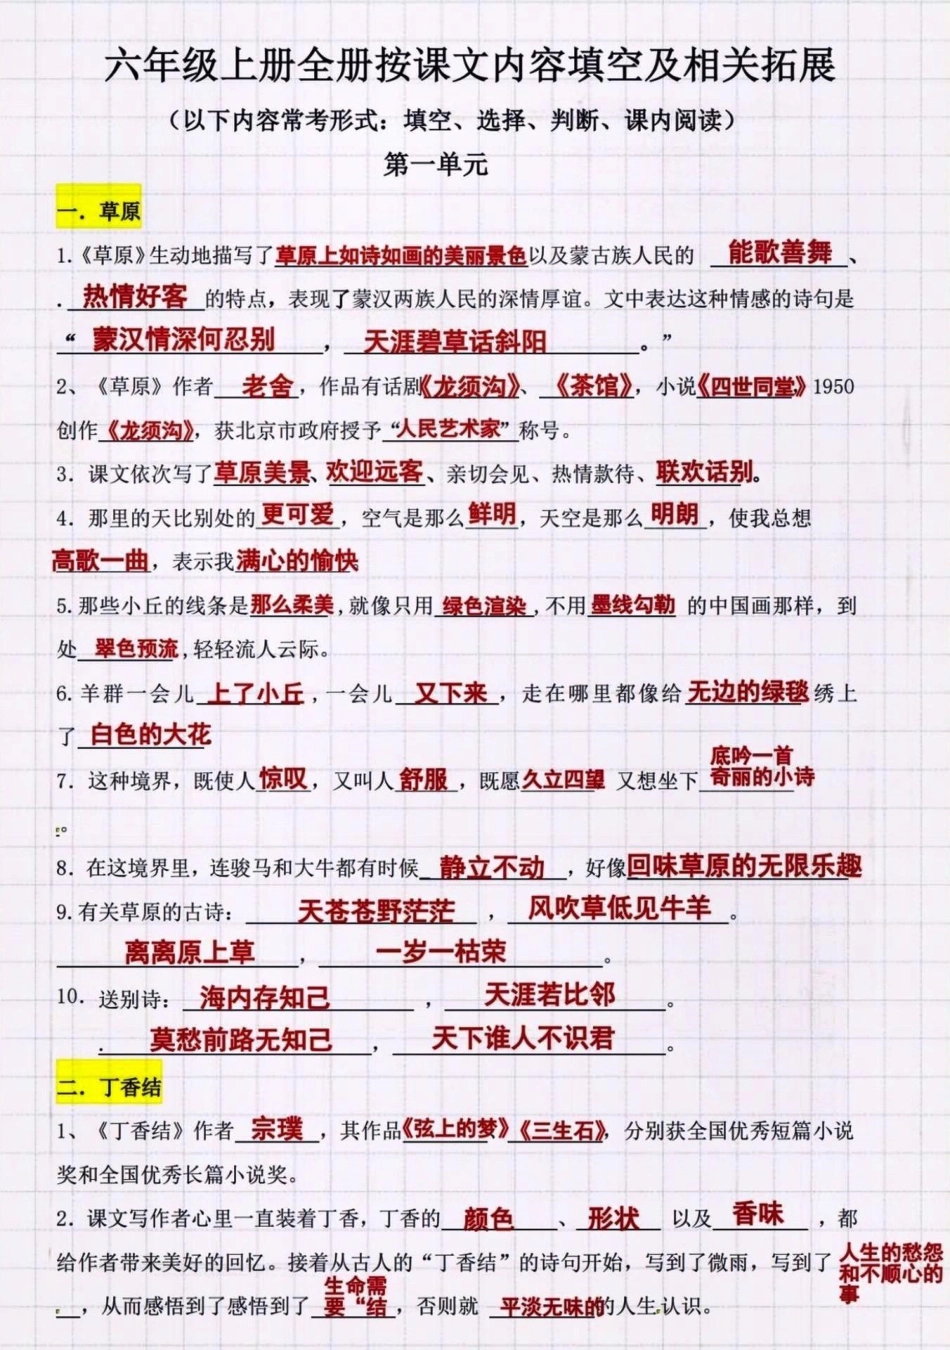 六年级上册全册按课文内容填空及相关拓展
（以下内容常考形式：填空、选择、判断、课内阅读）
第一单元
一．草原
1.《草原》生动地描写了草原上如诗如画的美丽景色以及蒙古族人民的 能歌善舞、
. 热情好客 的特点，表现了蒙汉两族人民的深情厚谊。文中表达这种情感的诗句是
“ 蒙汉情深何忍别 ， 天涯碧草话斜阳 。”
2、《草原》作者 老舍 ，作品有话剧《龙须沟》、《茶馆》，小说《四世同堂》1950
创作《龙须沟》，获北京市政府授予“人民艺术家”称号。
3．课文依次写了草原美景、欢迎远客、亲切会见、热情款待、联欢话别。
4．那里的天比别处的更可爱，空气是那么鲜明，天空是那么明朗，使我总想
高歌一曲，表示我满心的愉快
5.那些小丘的线条是那么柔美,就像只用绿色渲染,不用墨线勾勒 的中国画那样，到
处 翠色预流,轻轻流人云际。
6.羊群一会儿 上了小丘,一会儿 又下来，走在哪里都像给无边的绿毯绣上
了 白色的大花
7．这种境界，既使人惊叹，又叫人舒服，既愿久立四望 又想坐下底吟一首
奇丽的小诗
。
8．在这境界里，连骏马和大牛都有时候 静立不动 ，好像回味草原的无限乐趣
9.有关草原的古诗： 天苍苍野茫茫 ， 风吹草低见牛羊 。
离离原上草 ， 一岁一枯荣 。
10．送别诗： 海内存知己 ， 天涯若比邻 。
. 莫愁前路无知己 ， 天下谁人不识君 。
二．丁香结
1、《丁香结》作者 宗璞 ，其作品《弦上的梦》《三生石》，分别获全国优秀短篇小说
奖和全国优秀长篇小说奖。
2．课文写作者心里一直装着丁香，丁香的 颜色 、 形状 以及 香味 ，都
给作者带来美好的回忆。接着从古人的“丁香结”的诗句开始，写到了微雨，写到了 人生的愁怨
和不顺心的
事
，从而感悟到了感悟到了 生命需
要“结 ，否则就 平淡无味的的人生认识。